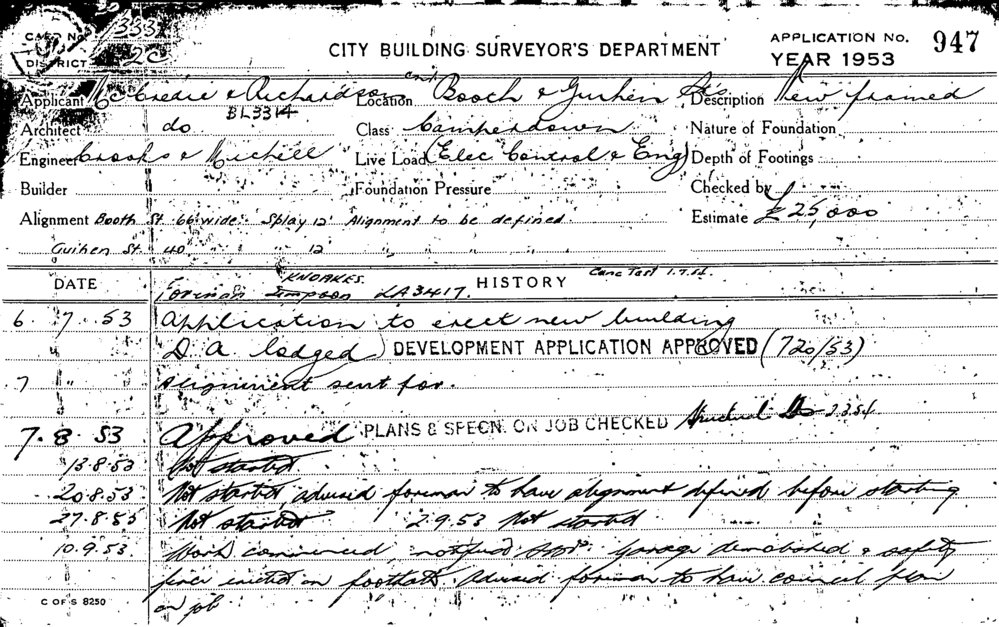 CARD No. 1333
DISTRICT 2C
CITY BUILDING SURVEYOR'S DEPARTMENT
APPLICATION No. 947
YEAR 1953
Applicant McCredie & Richardson
Location Booth & Guihen Sts
Description New framed
BL3314
Architect do
Class Camperdown
Nature of Foundation
Engineer Crooks & Michell
Live Load (Elec Control & Eng)
Depth of Footings
Builder
Foundation Pressure
Checked by
Alignment Booth St 66' wide Splay 12' Alignment to be defined
Estimate £25,000
Guihen St 40 " 12 " " " "
DATE
HISTORY
Conc Test 1.7.54
KNOAKES
Foreman Simpson LA3417
6.7.53 Application to erect new building
" " D A lodged) DEVELOPMENT APPLICATION APPROVED (720/53)
7 " " Alignment sent for.
7.8.53 Approved PLANS & SPECN. ON JOB CHECKED 2.3.54
13.8.53 Not started
20.8.53 Not started advised foreman to have alignment defined before starting
27.8.53 Not started 2.9.53 Not started
10.9.53 Work commenced notified Garage demolished & safety
fence erected on footpath. Advised foreman to have council plan
on job
C OF S 8250